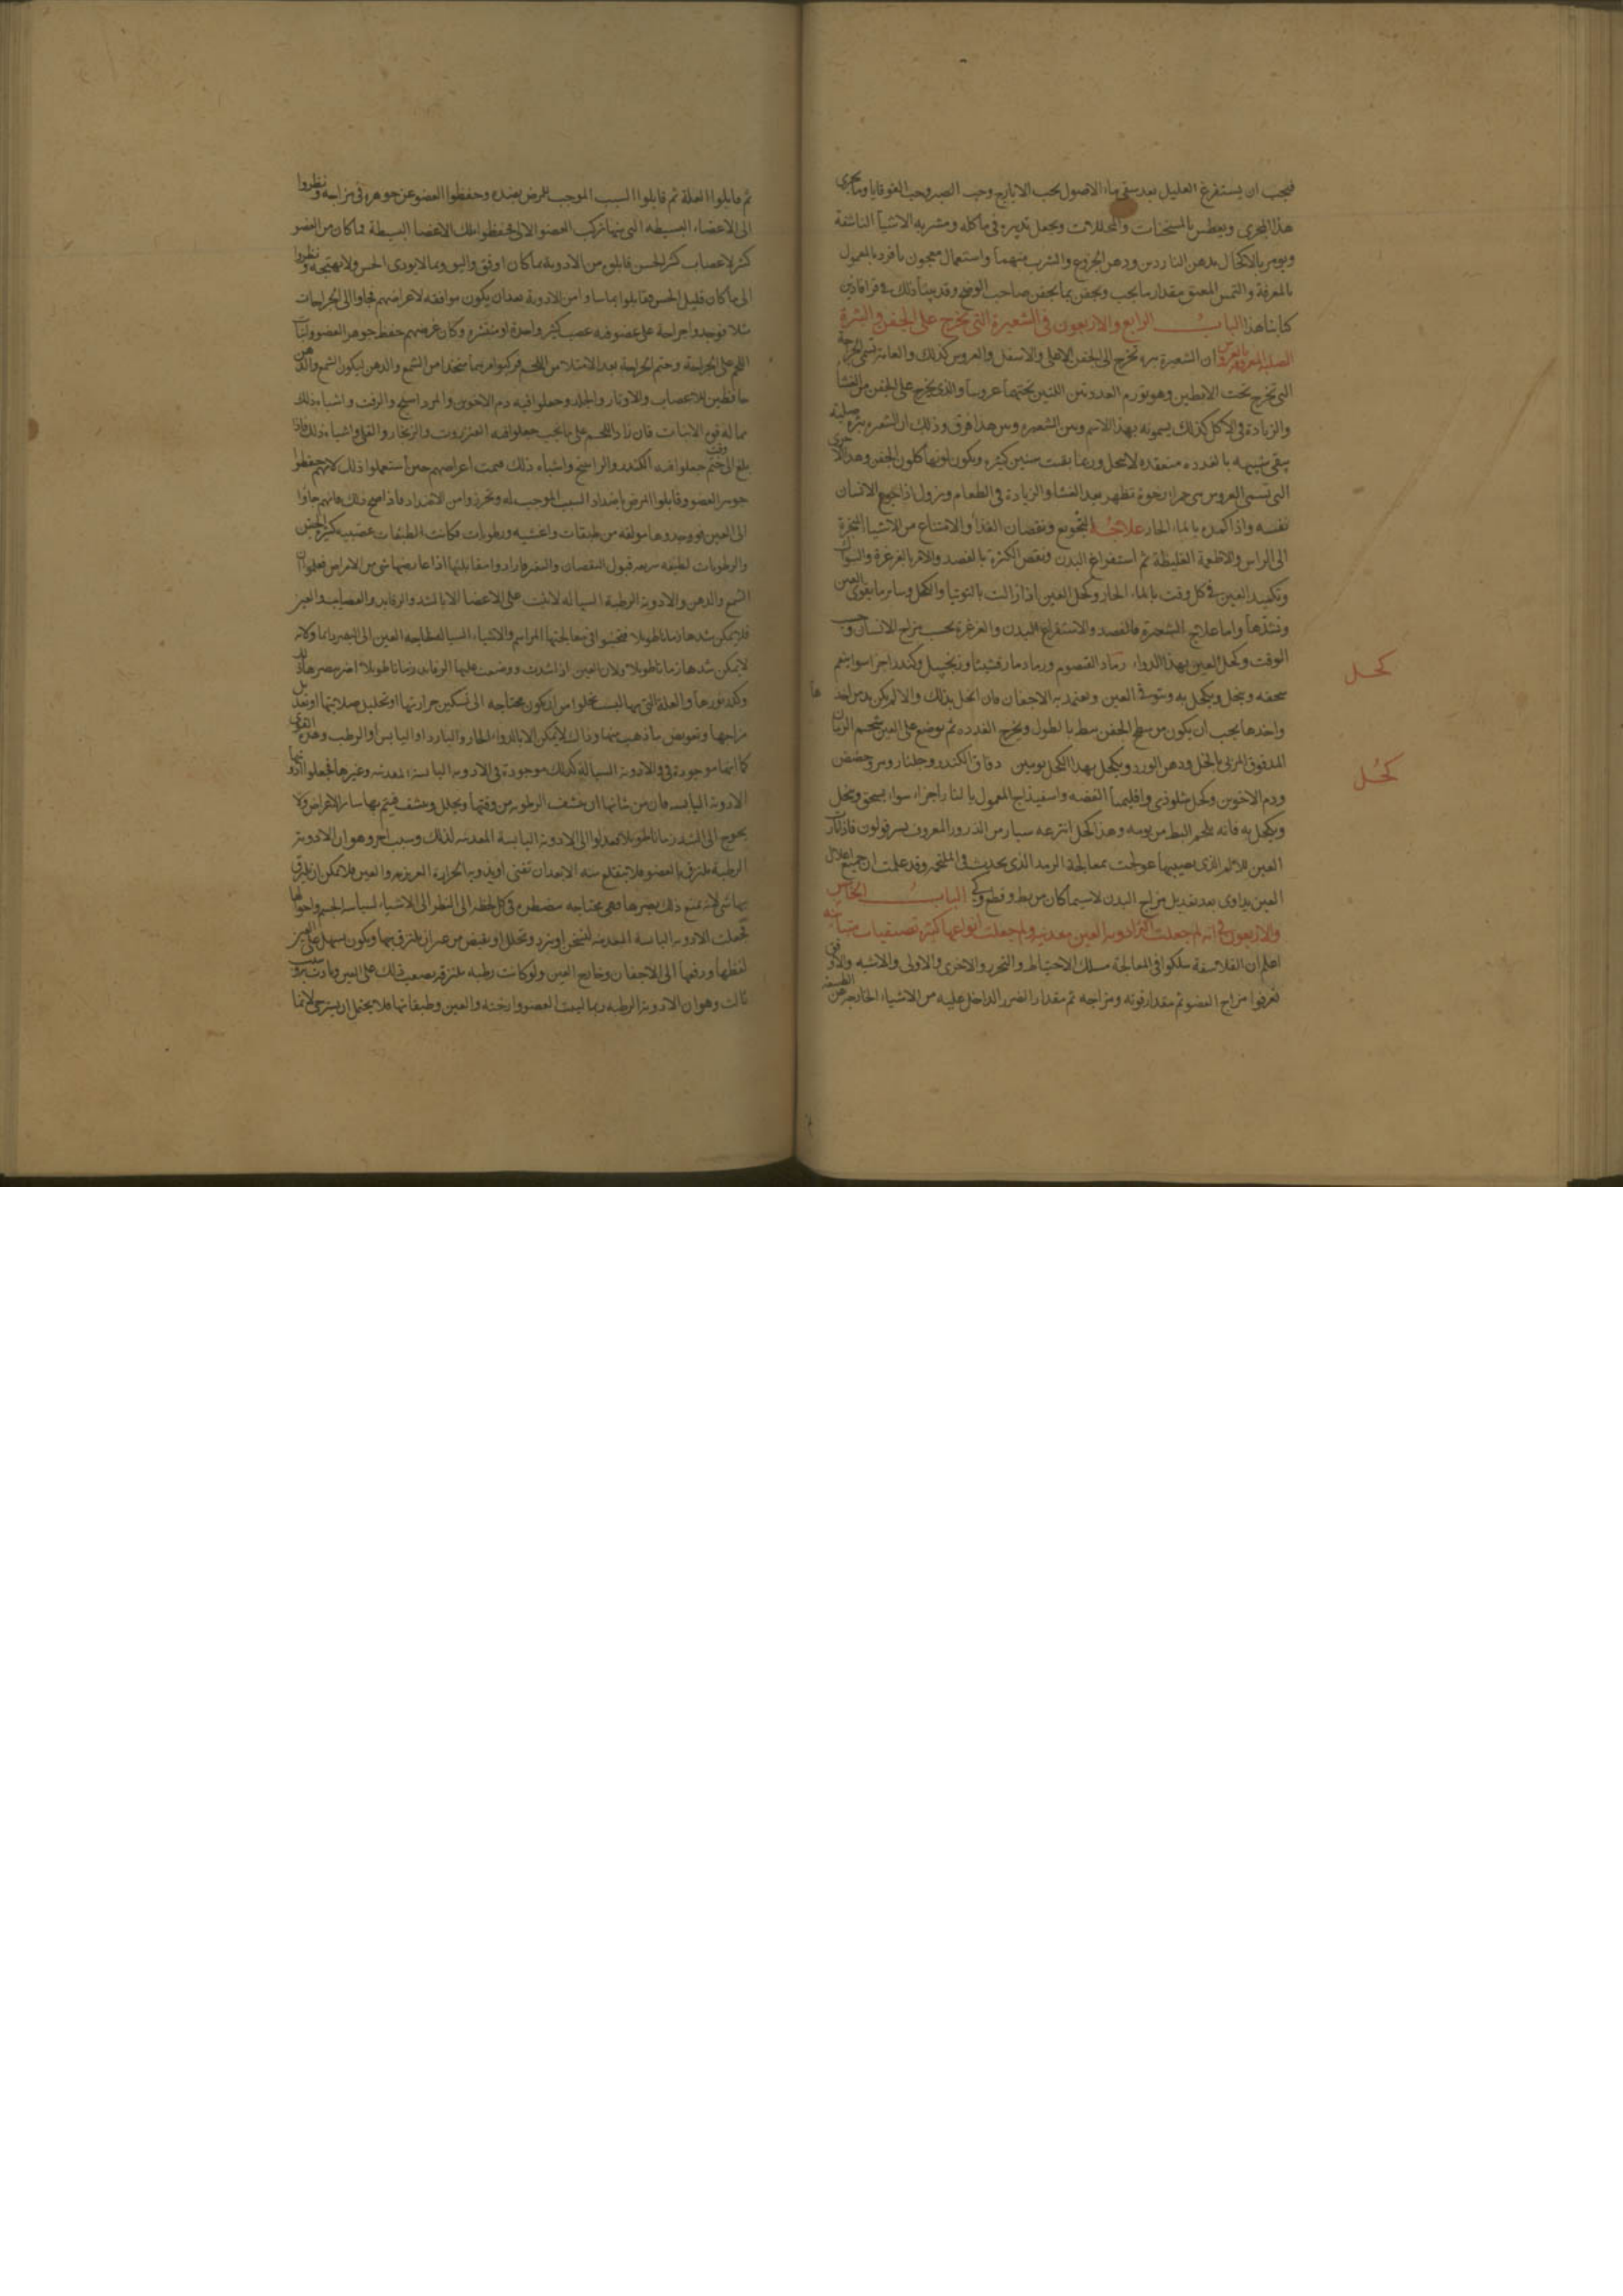 فيجب ان يستفرغ العليل بعد سقى ماء الاصول بحب الايارج وحب الصبر وحب القوقايا وما يجرى
هذا المجرى ويعطس بالمسخنات والمحللات ويجعل تدبيره فى ماكله ومشربه الاشيا الناشفة
ويومر بالاكتحال بدهن الناردين ودهن الخروع والشرب منهما واستعمال معجون بافردبا المعمول
بالمعرفة والتمس المعتق مقدار ما يجب ويجفن بما يجفن صاحب وقد بينا ذلك فى قرافاذين
كتابنا هذا الباب الرابع والاربعون فى الشعيرة التى تخرج على الجفن والبثرة
الصلبة المعروفة بالعروس ان الشعيرة بثرة تخرج الى الجفن الاعلى والاسفل والعروس كذلك والعامة تسمى
التى تخرج تحت الابطين وهو تورم الغددتين اللتين تحتهما عروسا والذى يخرج على الجفن من العشا
والزيادة فى الاكل كذلك يسمونه بهذا الاسم وبين الشعيرة وبين هذا فرق وذلك ان الشعيرة بثرة صلبة
يبقى شبيهه بالغدده منعقده لا تتحلل وربما بقيت سنين كثيره ويكون لونها كلون الجفن وهذه الاخرى
التى تسمى العروس هى حمرا رخوة تظهر بعد العشا والزيادة فى الطعام ويزول اذا جوع الانسان
نفسه واذا كمده بالماء الحار علاجه التجويع ونقصان الغذا والامتناع من الاشيا المبخرة
الى الراس والاطعمة الغليظة ثم استفراغ البدن ونقص الكثرة بالفصد والامر بالغرغرة والسواك
وتكميد العين فى كل وقت بالماء الحار وكحل العين اذا زالت بالتوتيا والكحل وساير ما يقوى العين
ويشدها واما علاج الشعيرة فالفصد والاستفراغ للبدن والغرغرة بحسب مزاج الانسان وحسب
الوقت وكحل العين بهذا الدواء رماد القصوم ورماد مارقشيثا وزنجبيل وكندر اجزا سوا ينعم
سحقه وينخل ويكحل به وستوفى العين ويعتمد به الاجفان فان انحل بذلك والا لم يكن بد من اخذها
واخذها يجب ان يكون من سطح الجفن ببط بالطول ويخرج الغدده ثم يوضع على العين شحم الرمان
المدقوق المربى بالخل ودهن الورد ويكحل بهذا الكحل يومين دقاق الكندر وجلنار وحضض
ودم الاخوين وكحل واقليميا الفضه واسفيذاج المعمول بالنار اجزاء سواء يسحق وينخل
ويكحل به فانه يلحم البط من يومه وهذا الكحل انتزعه سيار من الذرور المعروف فاذا كان
العين للالم الذى يصيبها عولجت بمعالجة الرمد الذى يحدث فى الملتحم وقد علمت ان جميع اعلال
العين يداوى بعد تعديل مزاج البدن لا سيما كان من بط وقطع وكى الباب الخامس
والاربعون فى انه لم جعلت اكثر ادوية العين معدنيه ولم جعلت انواعها كثيرة
اعلم ان الفلاسفة سلكوا فى المعالجة مسلك الاحتياط والتحرز والاحرى والاولى والاشبه والاوفق
فعرفوا مزاج العضو ثم مقدار قوته ومزاجه ثم مقدار الضرر الداخل عليه من الاشياء الخارجه عن الطبيعة
كحل
كحل
ثم قابلوا العلة ثم قابلوا السبب الموجب للمرض بضده وحفظوا العضو عن جوهره فى مزاجه ونظروا
الى الاعضاء البسيطه التى منها تركب العضو الالى فحفظوا تلك الاعضا البسيطة فما كان من العضو
كثير الاعصاب كثير الحس قابلوه من الادوية بما كان اوفق واليق وبما لا يوذى الحس ولا يهيجه ونظروا
الى ما كان قليل الحس فقابلوا من الادوية بعد ان يكون موافقه لاغراضهم فجاوا الى الجراحات
مثلا فوجدوا جراحة على عضو فيه عصب كثير واحدة او منتشره وكان غرضهم حفظ جوهر العضو ونبات
اللحم على الجراحة وختم الجراحة بعد الامتلا من اللحم فركبوا مرهما متخذا من الشمع والدهن ليكون الشمع والدهن
حافظين للاعصاب والاوتار والجلد وجعلوا فيه دم الاخوين والمرداسنج والزفت واشباه ذلك
مما له قوه الانبات فان زاد اللحم على ما يجب جعلوا فيه العنزروت والزنجار والقلى واشباه ذلك فاذا
بلغ الى وقت ختم جعلوا فيه الكندر والراسخ واشباه ذلك فتمت اغراضهم حين استعملوا ذلك لانهم حفظوا
جوهر العضو وقابلوا المرض باضداد السبب الموجب له وتحرزوا من الاضداد فاذا صح ذلك فانهم جاؤا
الى العين فوجدوها مولفه من طبقات واغشيه ورطوبات فكانت الطبقات عصبيه كثير الحس
والرطوبات لطيفه سريعه قبول النقصان والتغير فارادوا مقابلتها اذا عارضها شى من الامراض فعلموا ان
الشمع والدهن والادوية الرطبة السيالة لا تثبت على الاعضا الا بالشد والرفايد والعصايب والعين
فلا يمكن شدها زمانا طويلا فتجنبوا فى معالجتها المراهم والاشياء السيالة لحاجة العين الى البصر دايما وكانه
لا يمكن شدها زمانا طويلا ولان العين اذا شدت ووضعت عليها الرفايد زمانا طويلا اضر ببصرها
وكدر نورها والعلة التى بها ليست تخلوا من ان يكون محتاجه الى تسكين حرارتها او تحليل صلابتها او تعديل
مزاجها وتعويض ما ذهب منها وذاك لا يمكن الا بالدواء الحار والبارد او اليابس او الرطب وهذه القوى
كما انها موجودة فى الادوية السيالة كذلك موجودة فى الادويه اليابسة المعدنيه وغيرها فجعلوا
الادوية اليابسه فان من شانها ان تنشف الرطوبه من وقتها ويحلل وينشف فيتم بها ساير الاغراض ولا
يحوج الى الشد زمانا طويلا فعدلوا الى الادوية اليابسة المعدنيه لذلك وسبب اخر وهو ان الادوية
الرطبة يلتزق بالعضو فلا ينقلع منه الا بعد ان تفنى او يذوبه الحرارة الغريزيه والعين فلا يمكن ان يلتزق
بها شى لانه يمنع ذلك بصرها وهى محتاجه مضطره فى كل لحظه الى النظر الى الاشياء لسياسة الجسم واحوالها
فجعلت الادويه اليابسة المعدنيه لتسخن او يبرد وتحلل او يقبض من غير ان يلتزق بها ويكون يسهل على العين
لفظها ودفعها الى الاجفان وخارج العين ولو كانت رطبه ملتزقه يصعب ذلك على العين
ثالث وهو ان الادوية الرطبه ربما لينت العضو وارخته والعين وطبقاتها فلا يحتمل ان يسترخى لانها